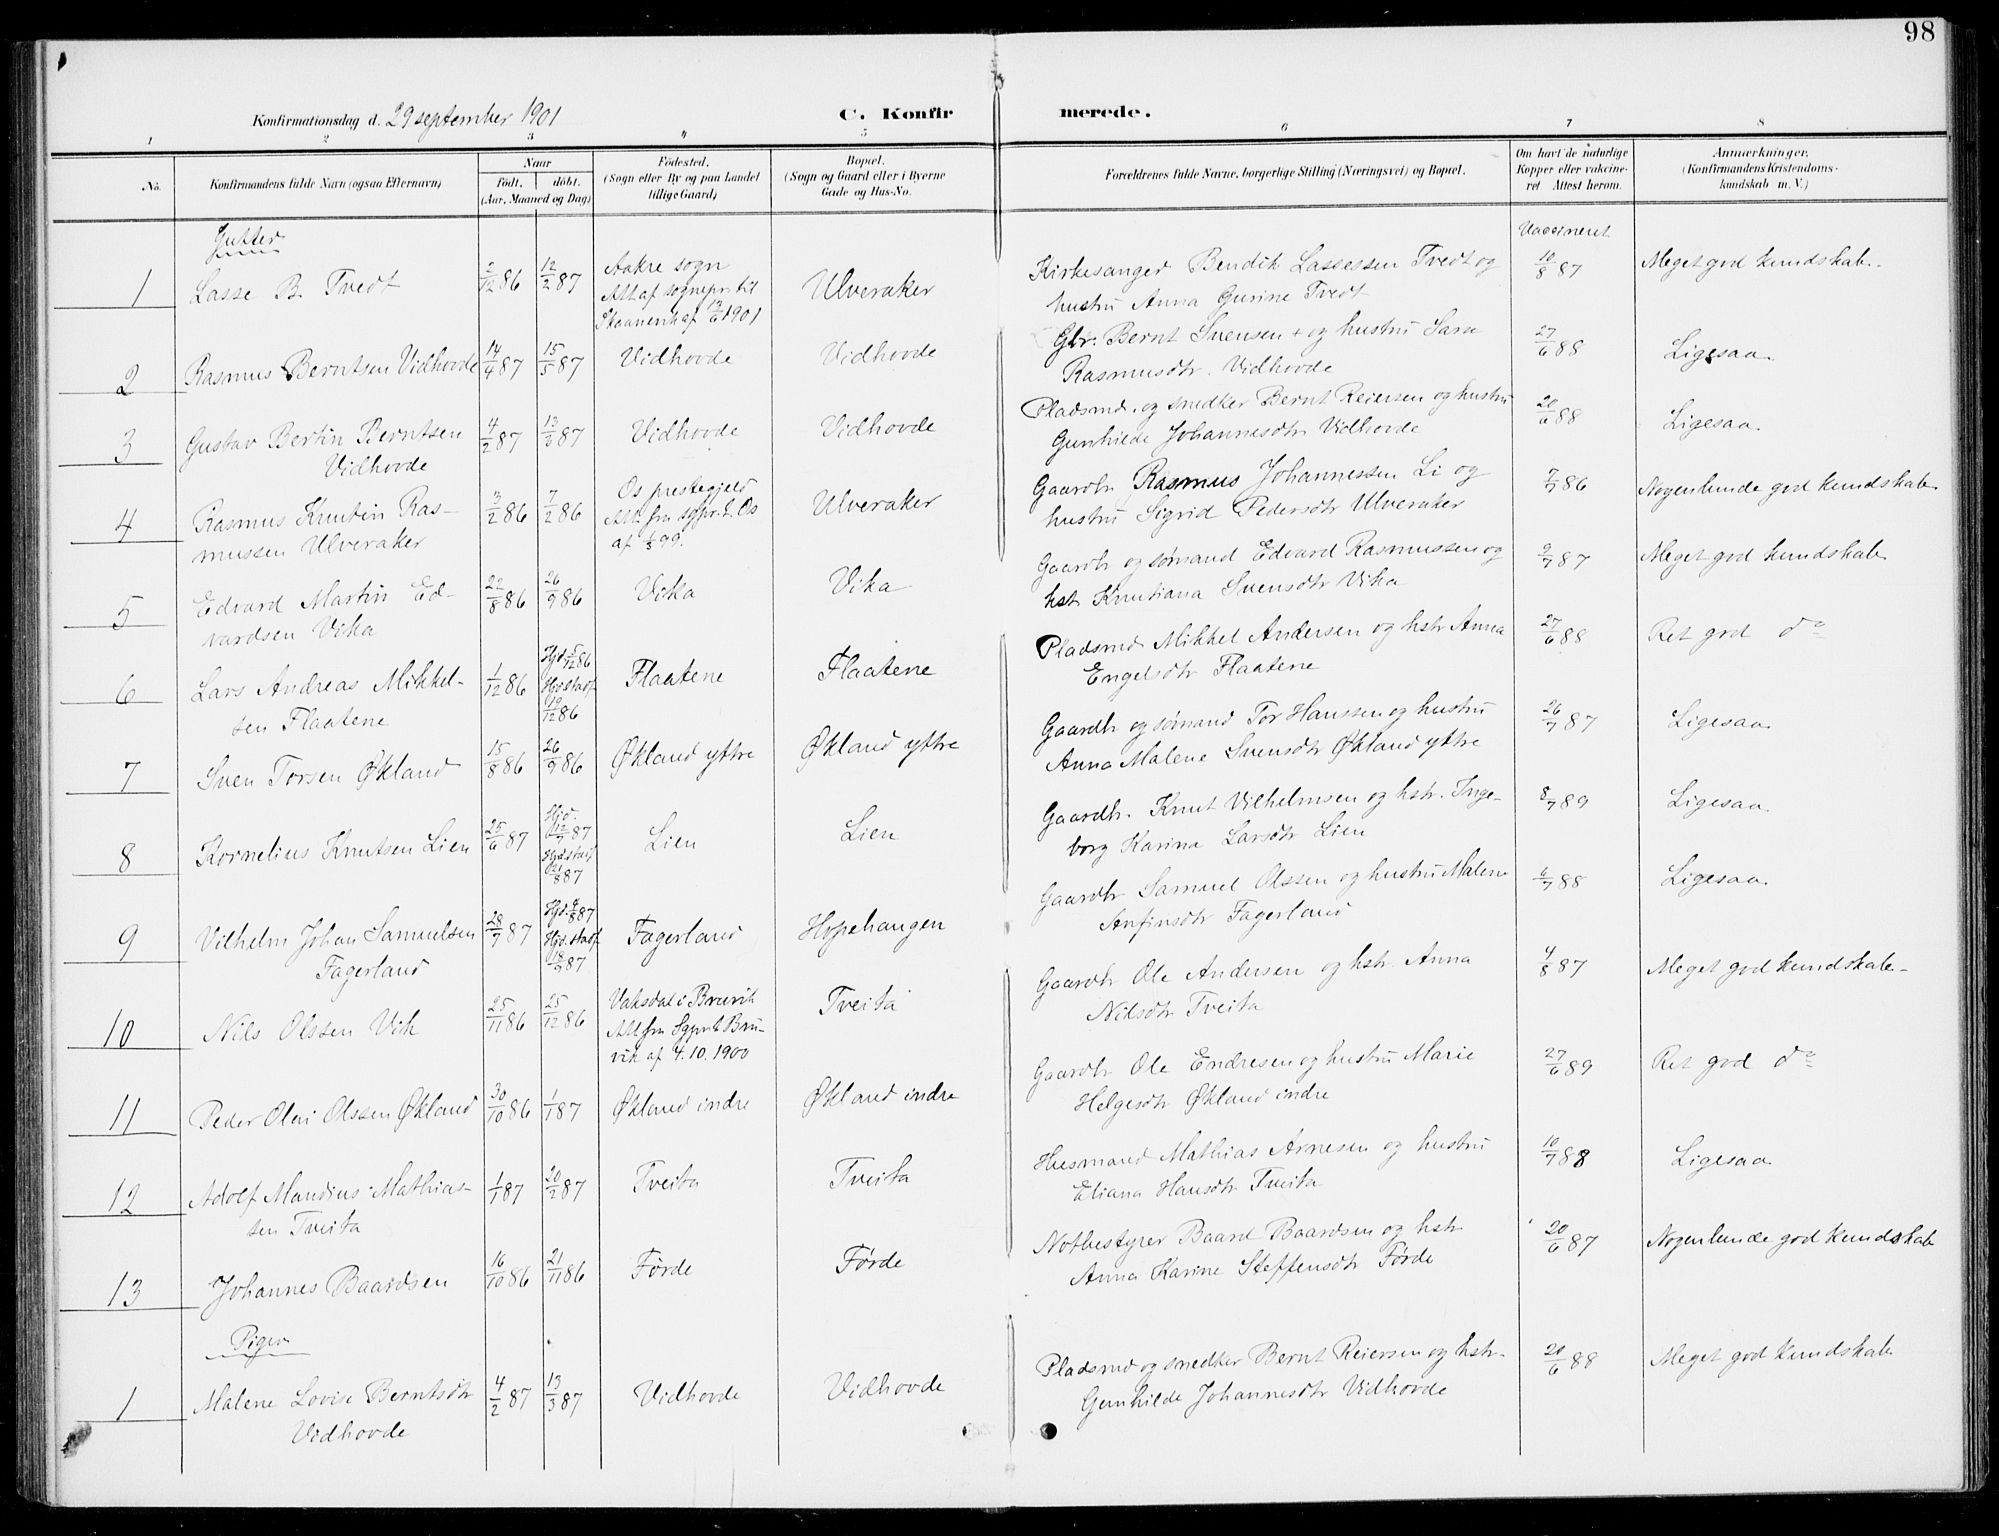 98
Konfirmationsdag d. 29 september 1901
C. Konfir merede.
1 2 3 4 5 6 7 8
No.
Konfirmandens fulde Navn (ogsaa Efternavn)
Naar
født, døbt.
(Aar, Maaned og Dag)
Fødested.
(Sogn eller By og paa Landet
tillige Gaard)
Bopæl.
(Sogn og Gaard eller i Byerne
Gade og Hus-No.
Forældrenes fulde Navne, borgerlige Stilling (Næringsvei) og Bopæl.
Om havt de naturlige
Kopper eller vakcine-
ret Attest herom.
Anmærkninger.
(Konfirmandens Kristendoms-
kundskab m. V.)
Gutter
Vaccineret
1 Lasse B. Tvedt 2/12 86 12/2 87
Aakre sogn
Att af sognepr. til
Skaanevik af 13/6 1901
Ulveraker
Kirkesanger Bendik Lassessen Tvedt og
hustru Anna Gurine Tvedt
10/8 87 Meget god kundskab.
2 Rasmus Berntsen Vidhovde 14/4 87 15/5 87 Vidhovde Vidhovde
Gbr. Bernt Svensen + og hustru Sara
Rasmusdtr. Vidhovde
27/6 88 Ligesaa
3 Gustav Bertin Berntsen
Vidhovde
4/2 87 13/3 87 Vidhovde Vidhovde
Pladsmd. og snedker Bernt Reiersen og hustru
Gunhilde Johannesdtr Vidhovde
20/6 88 Ligesaa
4 Rasmus Knutin Ras-
mussen Ulveraker
3/2 86 7/2 86
Os prestegjeld
Att. fra sgpr. t. Os
af 1/3 99.
Ulveraker
Gaardbr Rasmus Johannessen Li og
hustru Sigrid Pedersdtr Ulveraker
7/7 86 Nogenlunde god kundskab
5 Edvard Martin Ed-
vardsen Vika
22/8 86 26/9 86 Vika Vika
Gaardbr og sømand Edvard Rasmussen og
hst Knutiana Svensdtr Vika
9/7 87 Meget god kundskab
6 Lars Andreas Mikkel-
sen Flaatene
1/12 86
Hjd. 5/12 86
Hjd. stadf.
19/12 86
Flaatene Flaatene
Pladsmd Mikkel Andersen og hstr Anna
Engelsdtr Flaatene
27/6 88 Ret god do
7 Sven Torsen Økland 15/8 86 26/9 86 Økland yttre Økland yttre
Gaardbr og sømand Tor Hanssen og hustru
Anna Malene Svensdtr Økland yttre
26/7 87 Ligesaa
8 Kornelius Knutsen Lien 25/6 87
Hjd.
12/7 87
Hjd. stadf
21/8 87
Lien Lien
Gaardbr. Knut Vilhelmsen og hstr. Inge-
borg Karina Larsdtr Lien
8/7 89 Ligesaa
9 Vilhelm Johan Samuelsen
Fagerland
28/7 87
Hjd. 4/8 87
Hjd. stadf.
18/9 87
Fagerland Hopehaugen
Gaardbr Samuel Olssen og hustru Malene
Anfinsdtr Fagerland
6/7 88 Ligesaa
10 Nils Olssen Vik 25/11 86 25/12 86
Vaksdal i Bruvik
Att fra Sgpr t Bru-
vik af 4.10.1900
Tveita
Gaardbr Ole Andersen og hstr. Anna
Nilsdtr Tveita
4/8 87 Meget god kundskab
11 Peder Olai Olssen Økland 30/10 86 1/1 87 Økland indre Økland indre
Gaardbr Ole Endresen og hustru Marie
Helgesdtr Økland indre
27/6 89 Ret god do
12 Adolf Mandius Mathias-
sen Tveita
1/1 87 20/2 87 Tveita Tveita
Husmand Mathias Arnesen og hustru
Eliana Hansdtr Tveita
10/7 88 Ligesaa
13 Johannes Baardsen 16/10 86 21/11 86 Førde Førde
Notbestyrer Baard Baardsen og hstr
Anna Karine Steffensdtr Førde
20/6 87 Nogenlunde god kundskab
Piger
1 Malene Lovise Berntsdtr
Vidhovde
4/2 87 13/3 87 Vidhovde Vidhovde
Pladsmd og snedker Bernt Reiersen og hstr.
Gunhilde Johannesdtr Vidhovde
20/6 88 Meget god kundskab